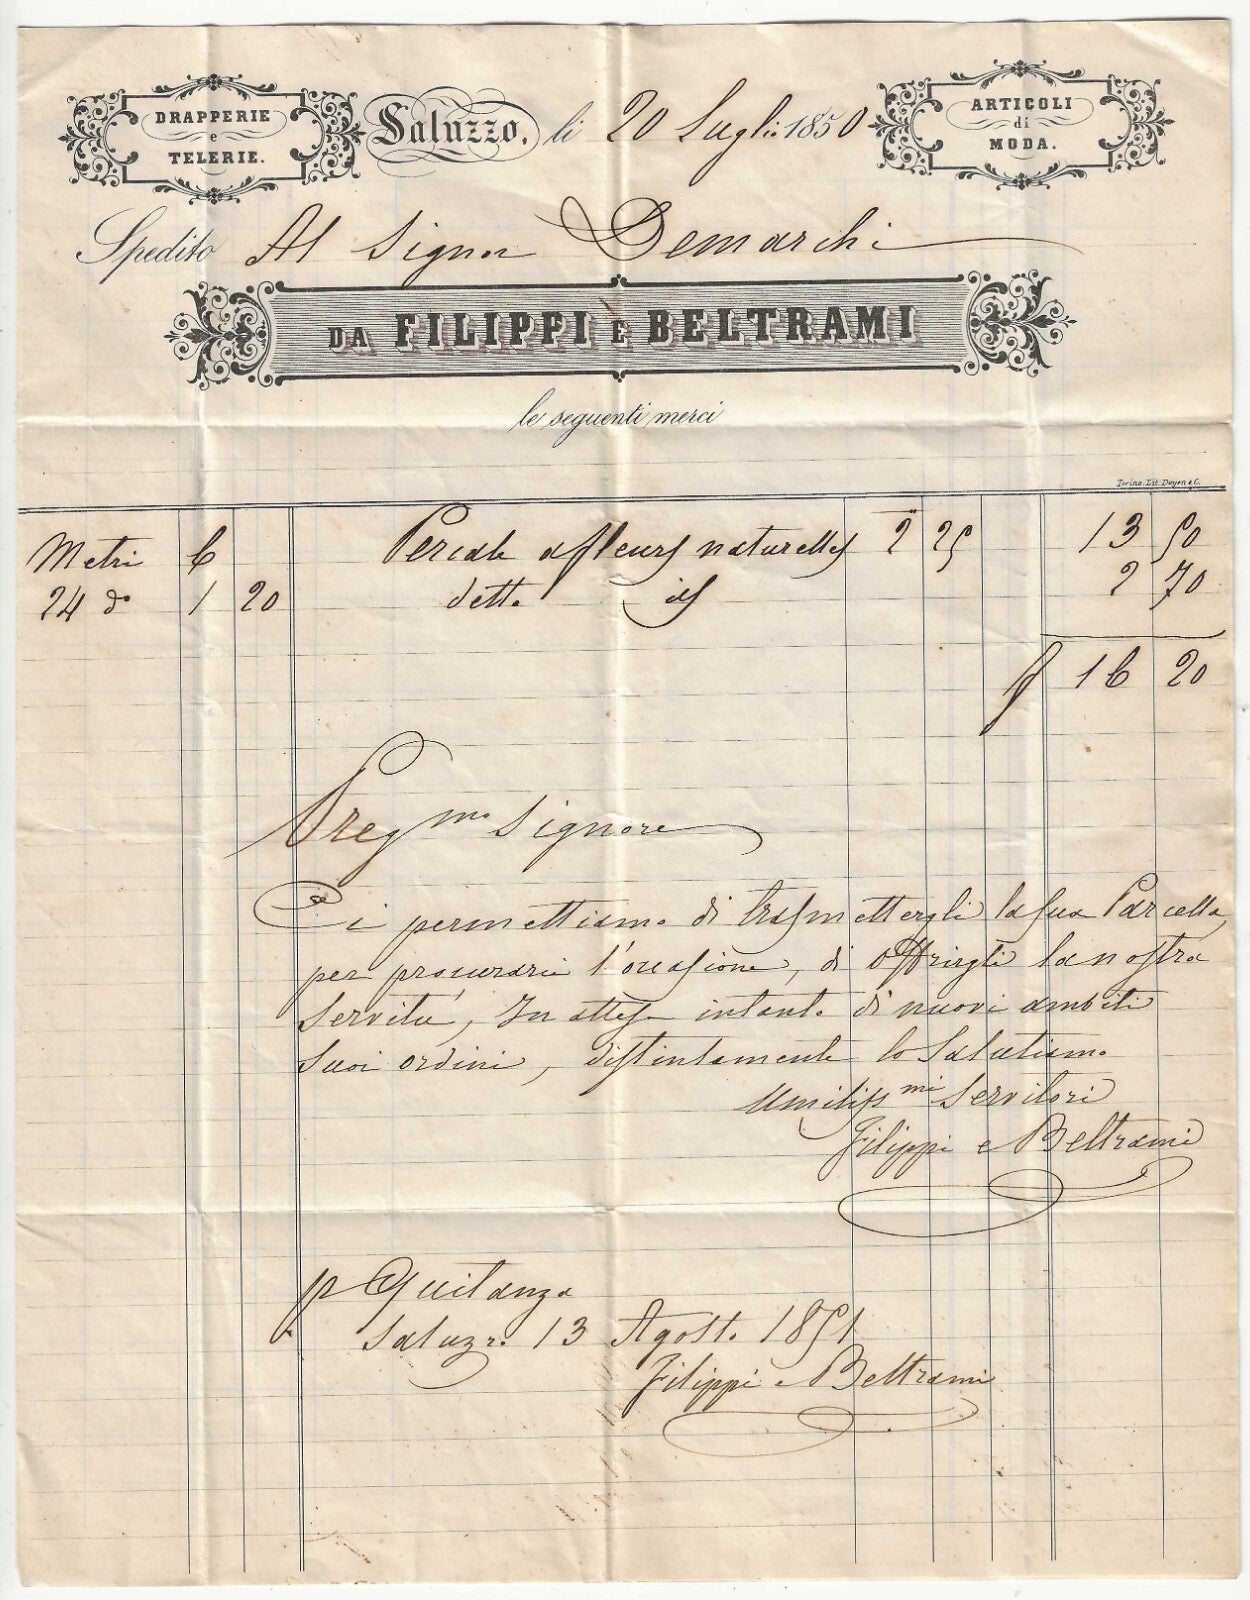 DRAPPERIE
e
TELERIE.
Saluzzo. li 20 Luglio 1850
ARTICOLI
di
MODA.
Spedito Al Signor Demarchi
DA FILIPPI E BELTRAMI
le seguenti merci
Torino. Lit. Doyen e C.
Metri 6 Percale a fleurs naturelles 2 25 13 50
24 do 1 20 detto id 2 70
16 20
Pregmo Signore
Ci permettiamo di trasmettergli la sua Parcella,
per procurarci l'occasione, di offrirgli la nostra
Servitù, In attesa intanto di nuovi ambiti
suoi ordini, distintamente lo Salutiamo
Umilissmi Servitori
Filippi e Beltrami
p Quitanza
Saluzzo 13 Agosto 1851
Filippi e Beltrami